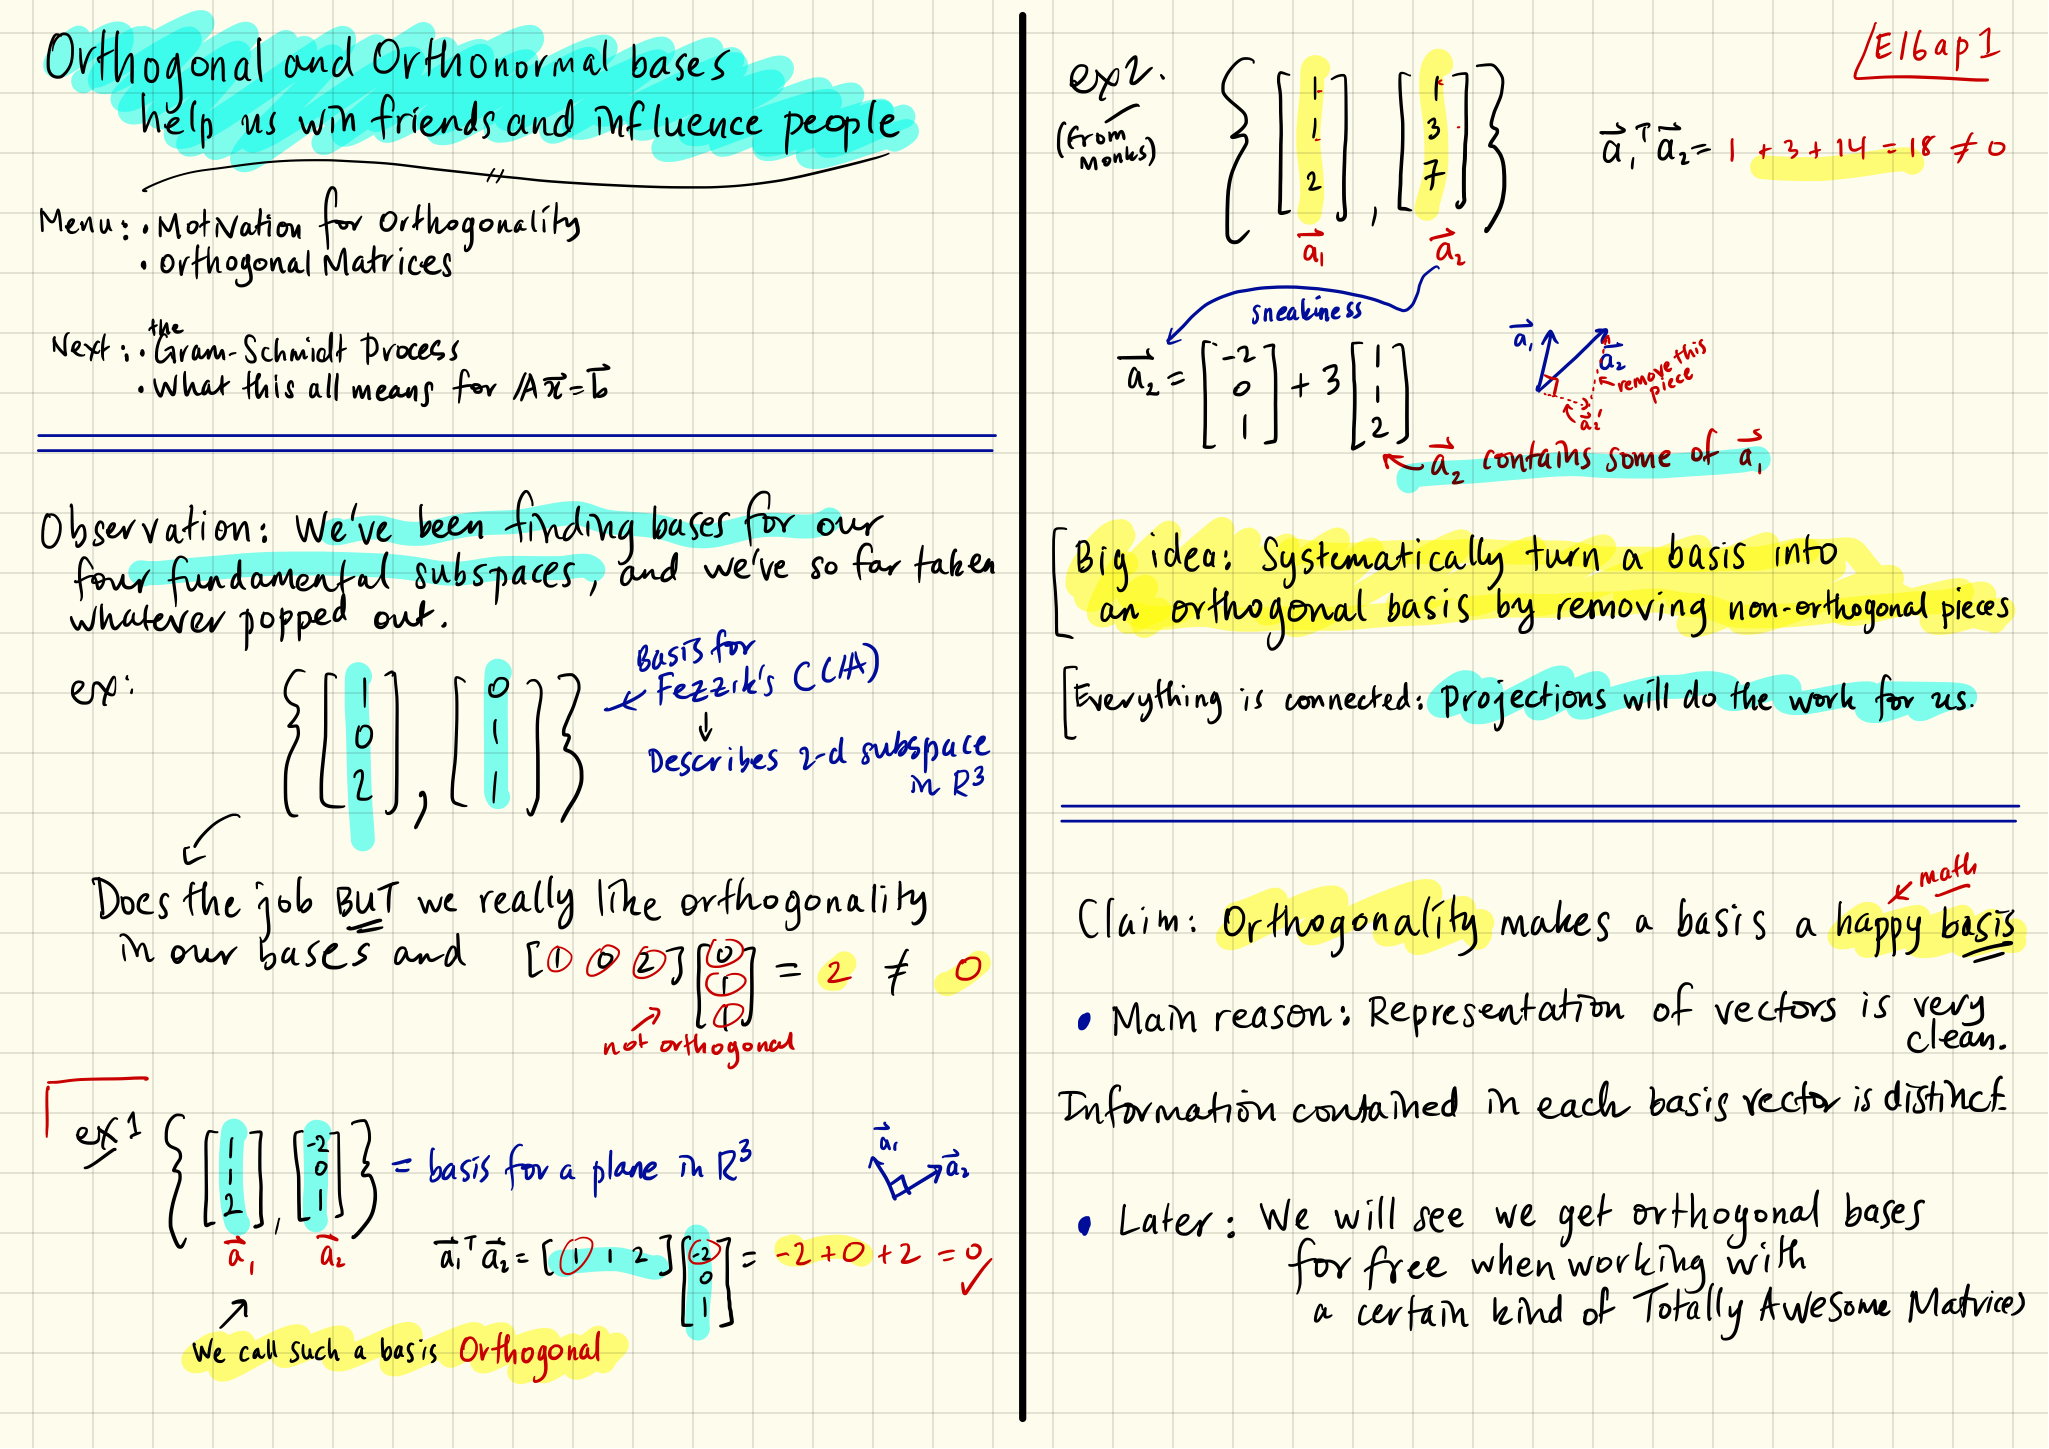 Orthogonal and Orthonormal bases
help us win friends and influence people
Menu: • Motivation for Orthogonality
• Orthogonal Matrices
Next: • the Gram-Schmidt Process
• What this all means for 𝔸x⃗ = b⃗
Observation: We've been finding bases for our
four fundamental subspaces, and we've so far taken
whatever popped out.
ex: { [1 0 2], [0 1 1] }
Basis for
Fezzik's C(𝔸)
↓
Describes 2-d subspace
in R³
Does the job BUT we really like orthogonality
in our bases and [1 0 2] [0 1 1] = 2 ≠ 0
not orthogonal
ex 1 { [1 1 2], [-2 0 1] } = basis for a plane in R³
a⃗₁ a⃗₂
a⃗₁ a⃗₂
a⃗₁ᵀ a⃗₂ = [1 1 2] [-2 0 1] = -2 + 0 + 2 = 0 ✓
We call such a basis Orthogonal
/E16a p1
ex 2. { [1 1 2], [1 3 7] }
(from
monks)
a⃗₁ᵀ a⃗₂ = 1 + 3 + 14 = 18 ≠ 0
a⃗₁ a⃗₂
sneakiness
a⃗₂ = [-2 0 1] + 3 [1 1 2]
a⃗₁ a⃗₂
remove this
piece
a⃗₂'
a⃗₂ contains some of a⃗₁
Big idea: Systematically turn a basis into
an orthogonal basis by removing non-orthogonal pieces
Everything is connected: Projections will do the work for us.
math
Claim: Orthogonality makes a basis a happy basis
• Main reason: Representation of vectors is very
clean.
Information contained in each basis vector is distinct.
• Later: We will see we get orthogonal bases
for free when working with
a certain kind of Totally Awesome Matrices